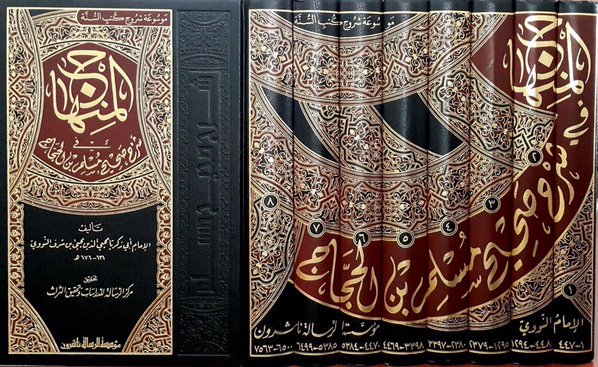 موسوعة شروح كتب السنة
المنهاج
في
شرح صحيح مسلم بن الحجاج
تأليف
الإمام أبي زكريا محيي الدين يحيى بن شرف النووي
٦٣١ - ٦٧٦ هـ
تحقيق
مركز الرسالة للدراسات وتحقيق التراث
مؤسسة الرسالة ناشرون
شرح صحيح مسلم
موسوعة شروح كتب السنة
المنهاج
في شرح صحيح مسلم بن الحجاج
١
٢
٣
٤
٥
٦
٧
٨
الإمام النووي
مؤسسة الرسالة ناشرون
١-٤٤٧
٤٤٨-١٢٩٤
١٢٩٥-٢٣٧٩
٢٣٨٠-٣٣٩٧
٣٣٩٨-٤٤٦٩
٤٤٧٠-٥٣٨٤
٥٣٨٥-٦٤٩٩
٦٥٠٠-٧٥٦٣